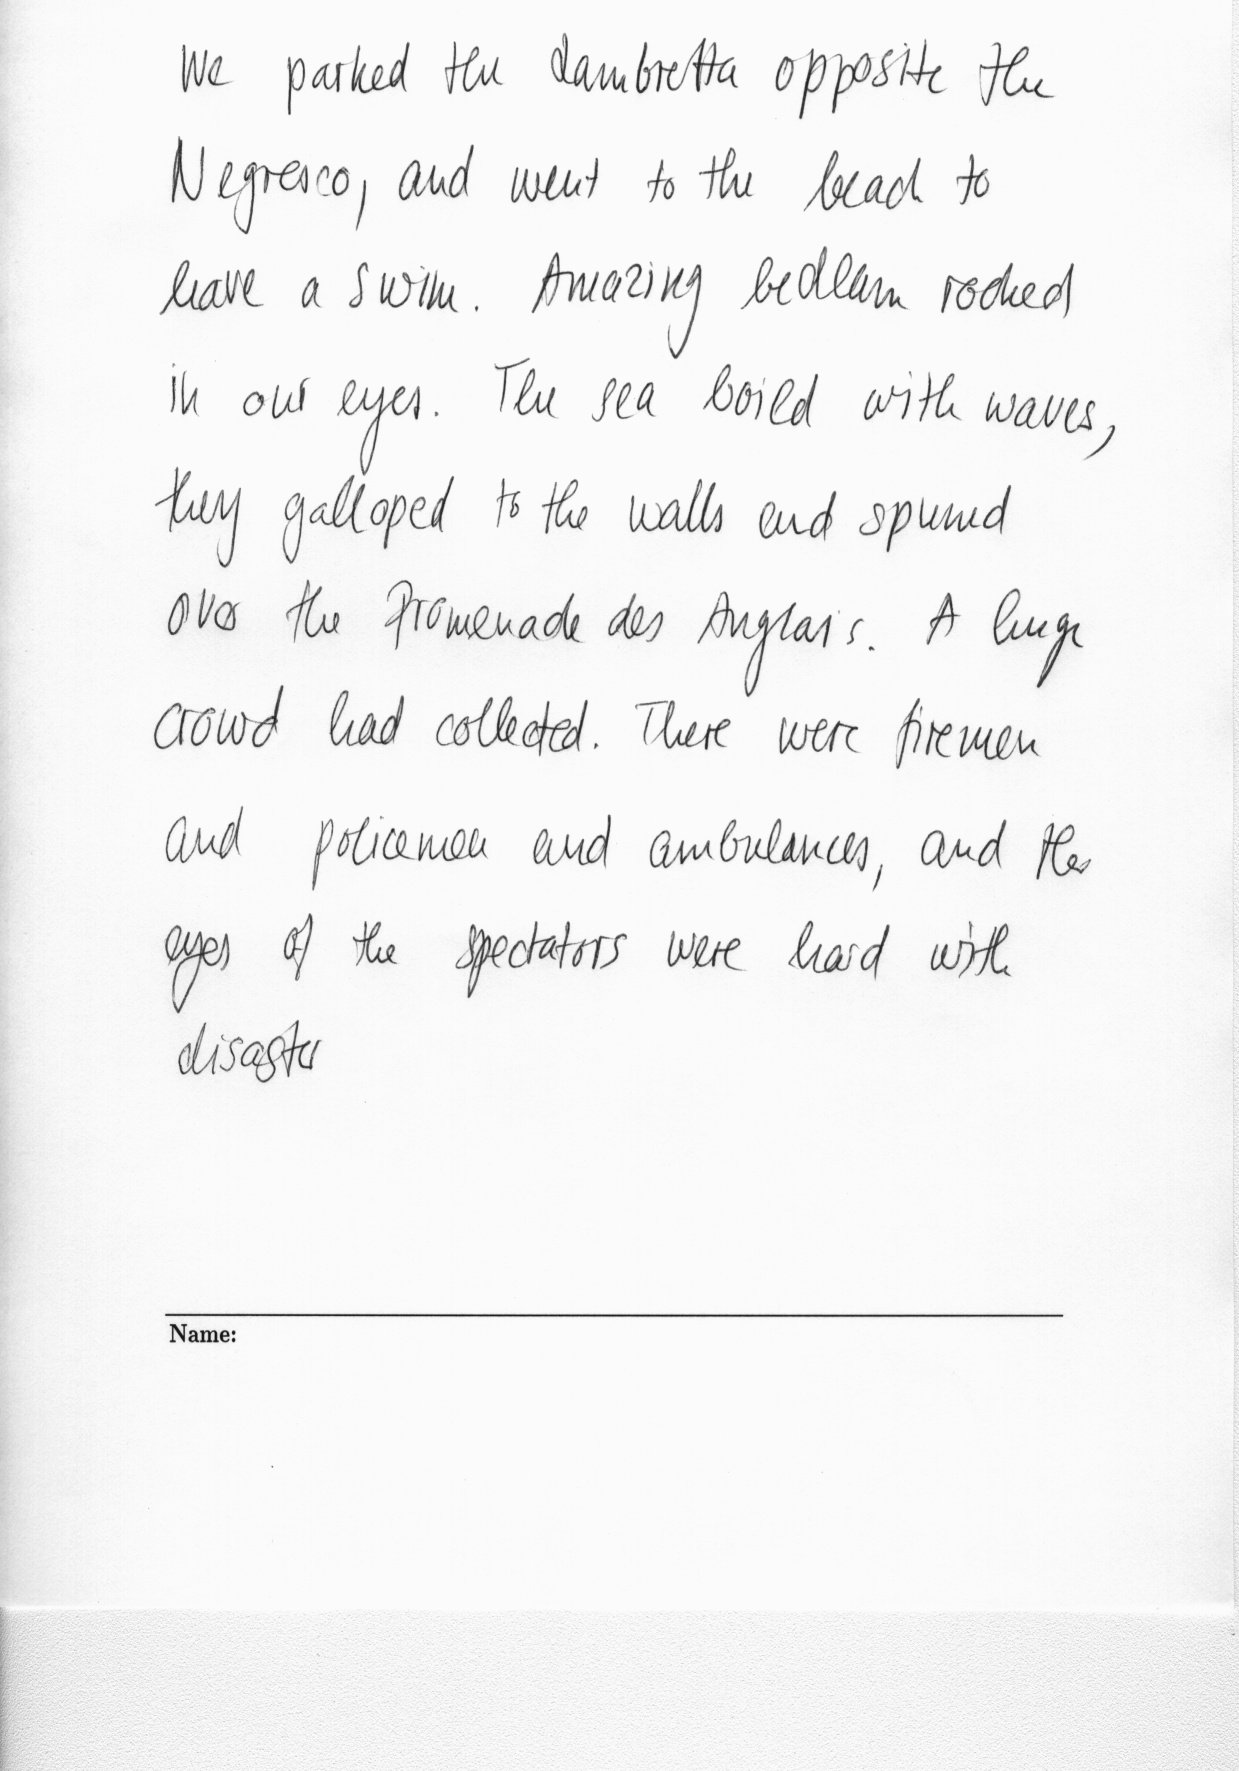 We parked the Lambretta opposite the
Negresco, and went to the beach to
have a swim. Amazing bedlam rocked
in our eyes. The sea boiled with waves,
they galloped to the walls and spumed
over the Promenade des Anglais. A huge
crowd had collected. There were firemen
and policemen and ambulances, and the
eyes of the spectators were hard with
disaster
Name: